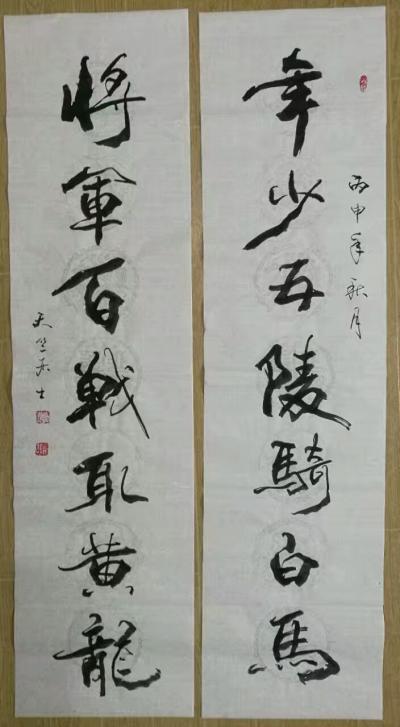 丙申年秋月
年少五陵騎白馬
將軍百戰取黄龍
天竺士